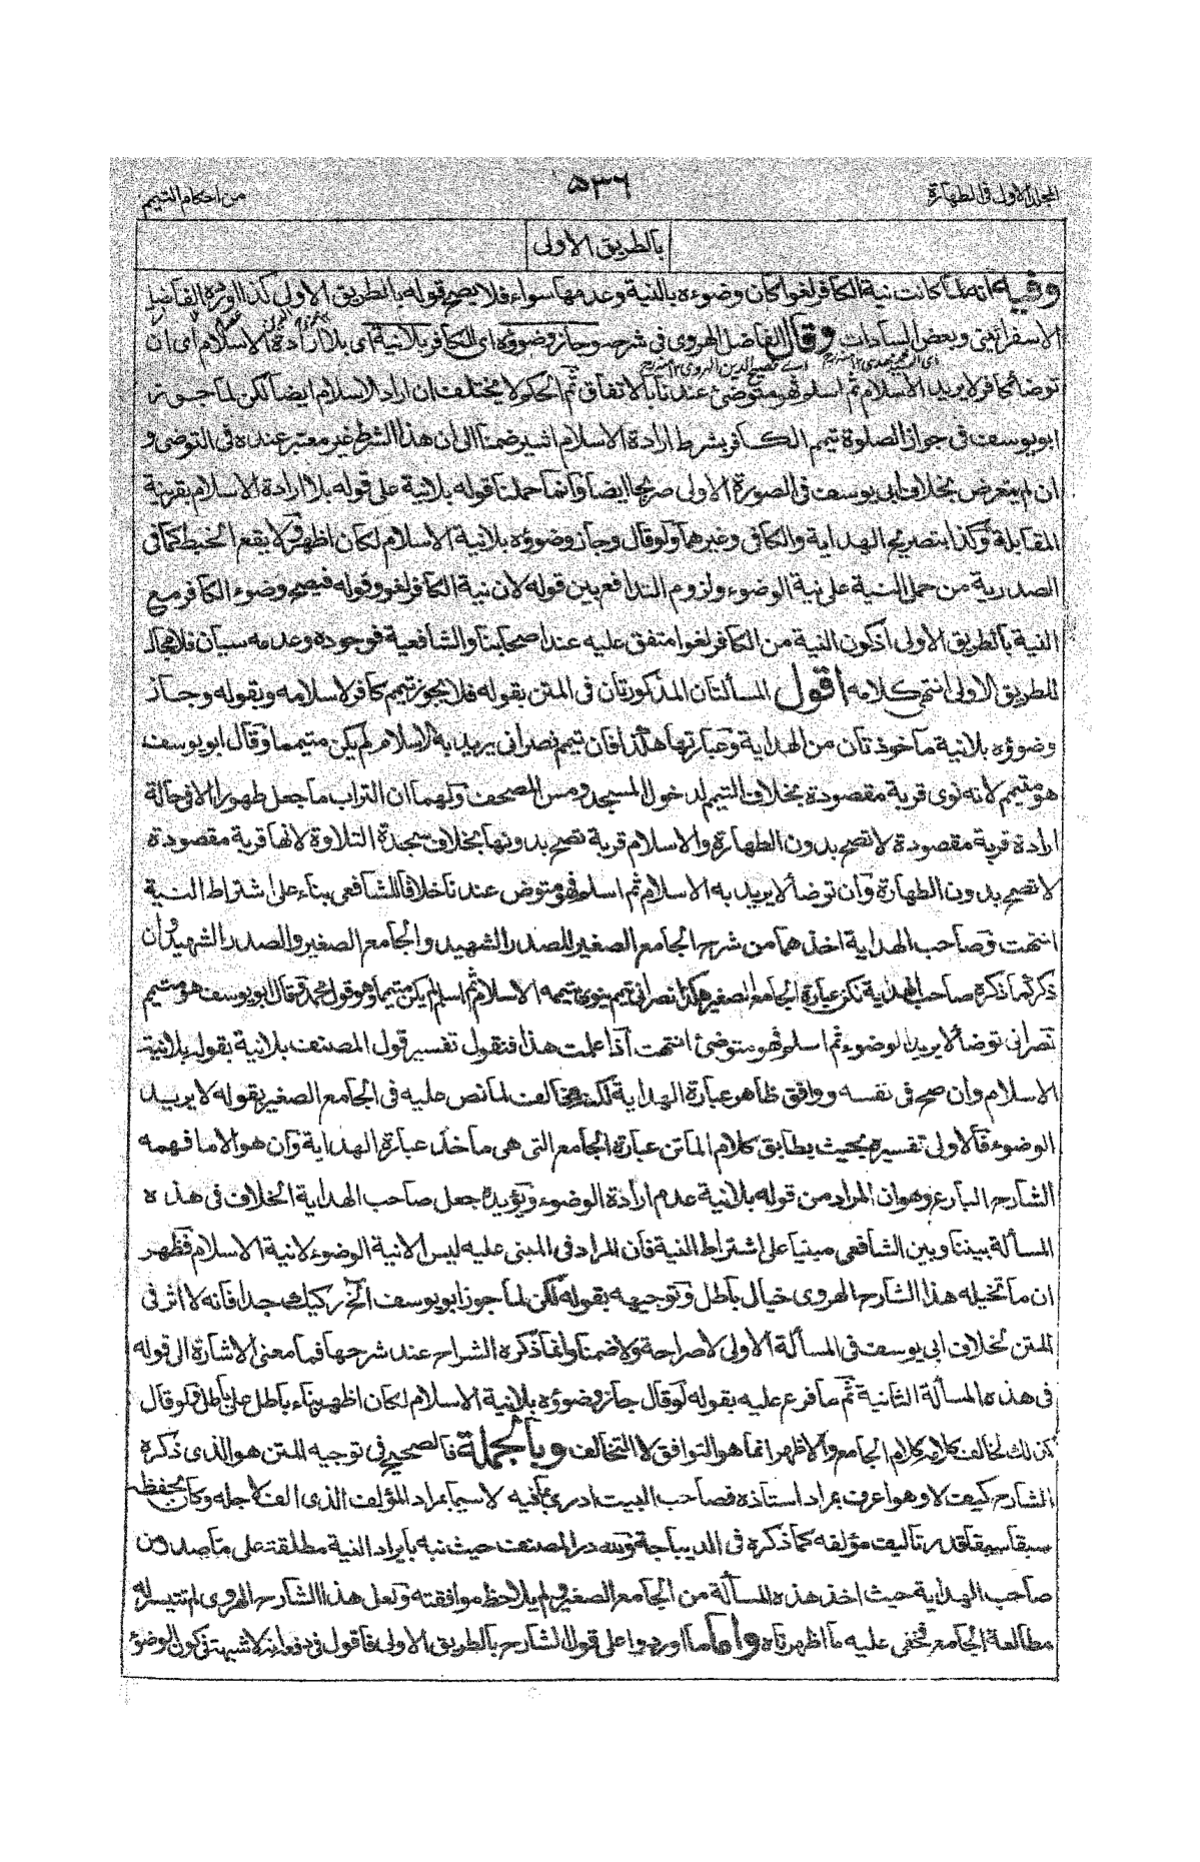 المجلد الاول فى الطهارة
٥٣٦
من احكام التيمم
بالطريق الاولى
وفيه انه لما كانت نية الكافر لغوا كان وضوءه بالنية وعدمها سواء فلا يصح قوله بالطريق الاولى كذا اورده الفاضل
الاسفرائينى وبعض السادات وقال الفاضل الهروى فى شرحه وجاز وضوؤه اى الكافر بلا نية اى بلا ارادة الاسلام اى ان
توضأ كافر لا يريد الاسلام ثم اسلم فهو متوضئ عندنا بالاتفاق ثم الحكم لا يختلف ان اراد الاسلام ايضا لكن لما جوز
ابو يوسف فى جواز الصلوة تيمم الكافر بشرط ارادة الاسلام اشير ضمنا الى ان هذا الشرط غير معتبر عنده فى التوضى و
ان لم يتعرض بخلاف ابى يوسف فى الصورة الاولى صريحا ايضا وانما حملنا قوله بلا نية على قوله بلا ارادة الاسلام بقرينة
المقابلة وكذا بتصريح الهداية والكافى وغيرهما ولو قال وجاز وضوؤه بلا نية الاسلام لكان اظهر ولا يقع الخبط كما فى
الصدرية من حمل النية على نية الوضوء ولزوم التدافع بين قوله لان نية الكافر لغو وقوله فيصح وضوء الكافر مع
النية بالطريق الاولى اذ كون النية من الكافر لغوا متفق عليه عند اصحابنا والشافعية فوجوده وعدمه سيان فلا مجال
للطريق الاولى انتهى كلامه اقول المسألتان المذكورتان فى المتن بقوله فلا يجوز تيمم كافر لاسلامه وبقوله وجاز
وضوؤه بلا نية ماخوذتان من الهداية وعبارتها هكذا فان تيمم نصرانى يريد به الاسلام لم يكن متيمما وقال ابو يوسف
هو متيمم لانه نوى قربة مقصودة بخلاف التيمم لدخول المسجد ومس المصحف ولهما ان التراب ما جعل طهورا الا فى حالة
ارادة قربة مقصودة لا تصح بدون الطهارة والاسلام قربة تصح بدونها بخلاف سجدة التلاوة لانها قربة مقصودة
لا تصح بدون الطهارة وان توضأ لا يريد به الاسلام ثم اسلم فهو متوض عندنا خلافا للشافعى بناء على اشتراط النية
انتهت وصاحب الهداية اخذهما من شرح الجامع الصغير للصدر الشهيد والجامع الصغير والصدر الشهيد وان
ذكر كما ذكره صاحب الهداية لكن عبارة الجامع الصغير هكذا نصرانى تيمم ينوى بتيممه الاسلام ثم اسلم لم يكن متيمما وهو قول محمد وقال ابو يوسف هو متيمم
نصرانى توضأ لا يريد الوضوء ثم اسلم فهو متوضئ انتهت اذا علمت هذا فنقول تفسير قول المصنف بلا نية بقوله بلا نية
الاسلام وان صح فى نفسه ووافق ظاهر عبارة الهداية لكنه مخالف لما نص عليه فى الجامع الصغير بقوله لا يريد
الوضوء فالاولى تفسيره بحيث يطابق كلام الماتن عبارة الجامع التى هى ماخذ عبارة الهداية وان هو الا ما فهمه
الشارح البارع وهو ان المراد من قوله بلا نية عدم ارادة الوضوء ويؤيده جعل صاحب الهداية الخلاف فى هذه
المسألة بيننا وبين الشافعى مبنيا على اشتراط النية فان المراد فى المبنى عليه ليس الا نية الوضوء لا نية الاسلام فظهر
ان ما تخيله هذا الشارح الهروى خيال باطل وتوجيهه بقوله لكن لما جوز ابو يوسف الخ ركيك جدا فانه لا اثر فى
المتن لخلاف ابى يوسف فى المسألة الاولى لا صراحة ولا ضمنا وانما ذكره الشراح عند شرحها فما معنى الاشارة الى قوله
فى هذه المسألة الثانية ثم ما فرع عليه بقوله لو قال جاز وضوؤه بلا نية الاسلام لكان اظهر بناء باطل على باطل فلو قال
كذلك لخالف كلامه كلام الجامع والاظهر انما هو التوافق لا التخالف وبالجملة فالصحيح فى توجيه المتن هو الذى ذكره
الشارح كيف لا وهو اعرف بمراد استاذه فصاحب البيت ادرى بما فيه لا سيما بمراد المؤلف الذى الف لاجله وكان يحفظه
سبقا سبقا قدر تاليف مؤلفه كما ذكره فى الديباجة ولله در المصنف حيث نبه بايراد النية مطلقة على ما صدر من
صاحب الهداية حيث اخذ هذه المسألة من الجامع الصغير ولم يلاحظ موافقته ولعل هذا الشارح الهروى لم تتيسر له
مطالعة الجامع فخفى عليه ما اظهرناه واما ما اوردوا على قول الشارح بالطريق الاولى فاقول فى دفعه انه لا شبهة فى كون الوضوء